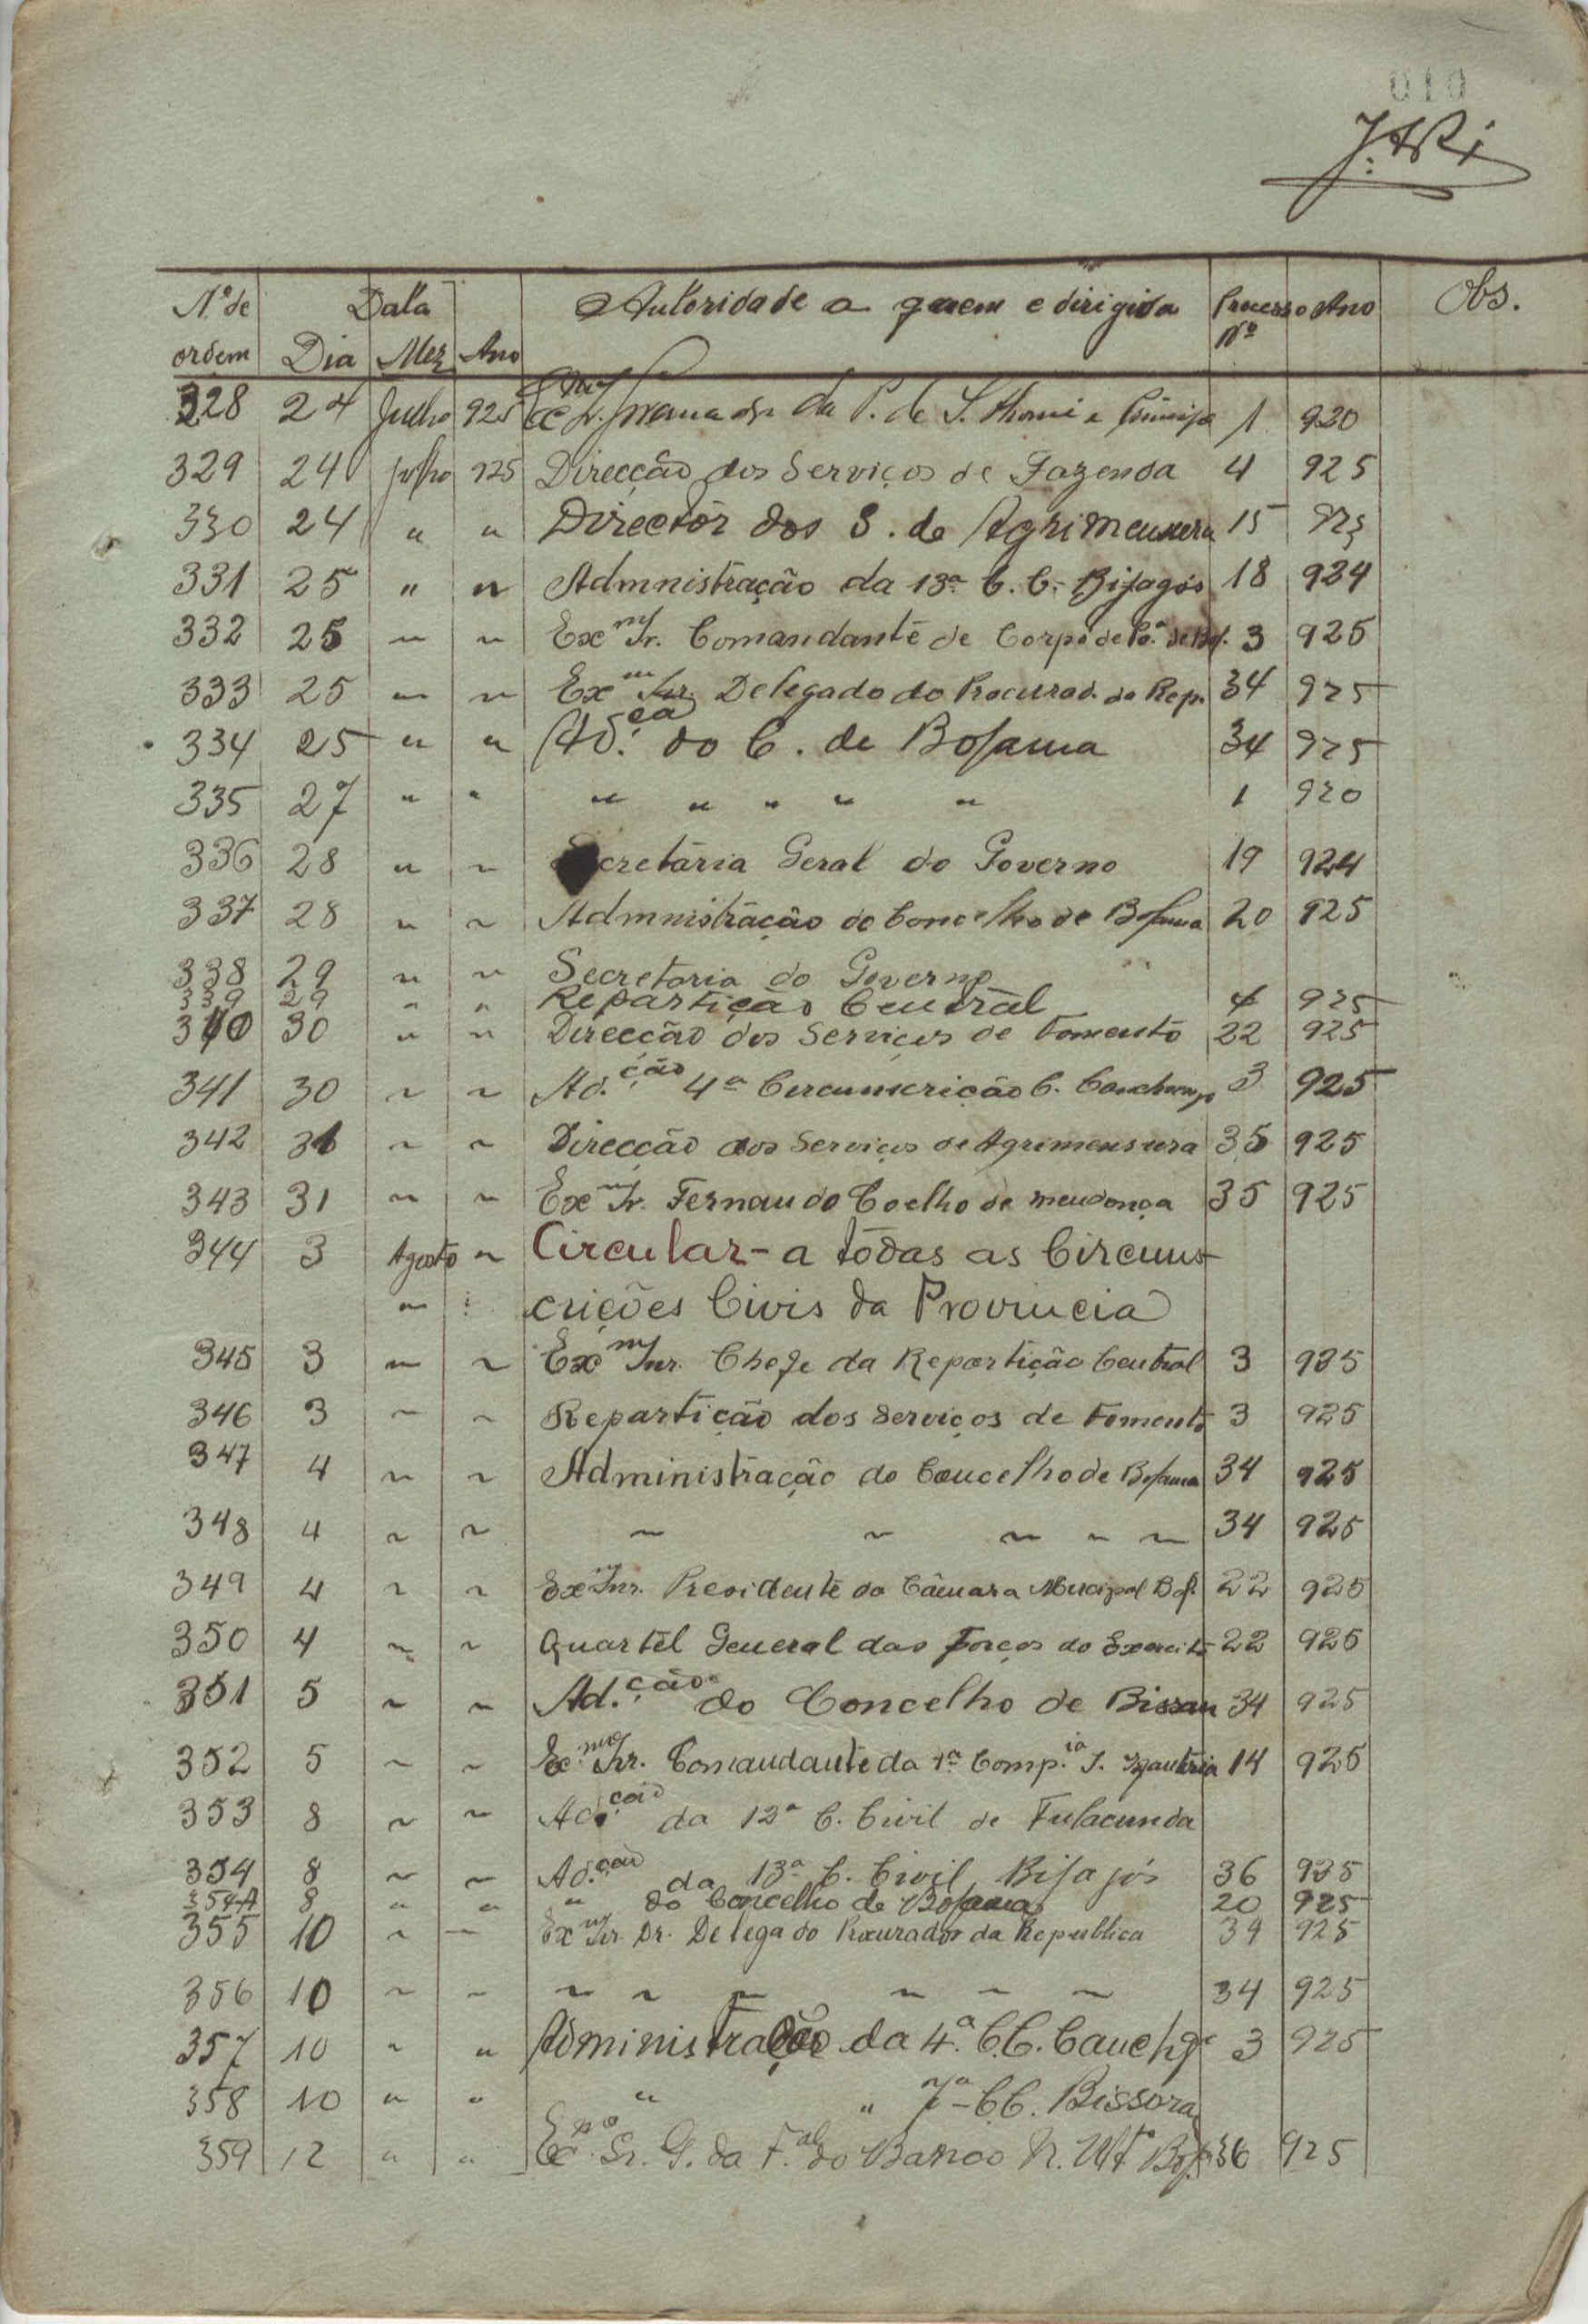 010
Nº de Data Autoridade a quem e dirigida Processo Ano Obs.
ordem Dia Mez Ano Nº
328 24 Julho 925 Exmº Sr. da P. de S. Thomé e Principe 1 920
329 24 Julho 925 Direcção dos Serviços de Fazenda 4 925
330 24 " " Director dos S. de Agrimensura 15 925
331 25 " " Admnistração da 13ª C. C. - Bijagós 18 924
332 25 " " Exmº Sr. Comandante de Corpo de Pª. de Bol. 3 925
333 25 " " Exmº Snr. Delegado do Procurad. da Rep. 34 925
334 25 " " Ad.ção do C. de Bolama 34 925
335 27 " " " " " " " 1 920
336 28 " " cretária Geral do Governo 19 924
337 28 " " Admnistração do Concelho de Bolama 20 925
338 29 " " Secretaria do Governo
339 29 " " Repartição Central 4 925
340 30 " " Direcção dos Serviços de Fomento 22 925
341 30 " " Ad.ção 4ª Circunscrição C. Canchungo 3 925
342 31 " " Direcção dos Serviços de Agrimensura 35 925
343 31 " " Exmº Sr. Fernando Coelho de Mendonça 35 925
344 3 Agosto " Circular - a tôdas as Circuns-
" : crições Civis da Provincia
345 3 " " Exmº Snr. Chefe da Repartição Central 3 925
346 3 " " Repartição dos Serviços de Fomento 3 925
347 4 " " Administração do Concelho de Bolama 34 925
348 4 " " " " " " " 34 925
349 4 " " Exmº Snr. Presidente da Câmara Mucipal Bol. 22 925
350 4 " " Quartél General das Forças do Exercito 22 925
351 5 " " Ad.ção do Concelho de Bissau 34 925
352 5 " " Exmº Snr. Comandante da 1ª Comp.ia I. Infantria 14 925
353 8 " " Ad.ção da 12ª C. Civil de Fulacunda
354 8 " " Ad.ção da 13ª C. Civil Bijajós 36 925
354A 8 " " " do Concelho de Bolama 20 925
355 10 " " Exmº Snr. Dr. Delegado Procurador da Republica 34 925
356 10 " " " " " " " " 34 925
357 10 " " Administração da 4.ª C.C. Canchgº 3 925
358 10 " " " " 7ª C.C. Bissora
359 12 " " Exmº Sr. G. da F.al do Banco N. Ultº Bol. 36 925